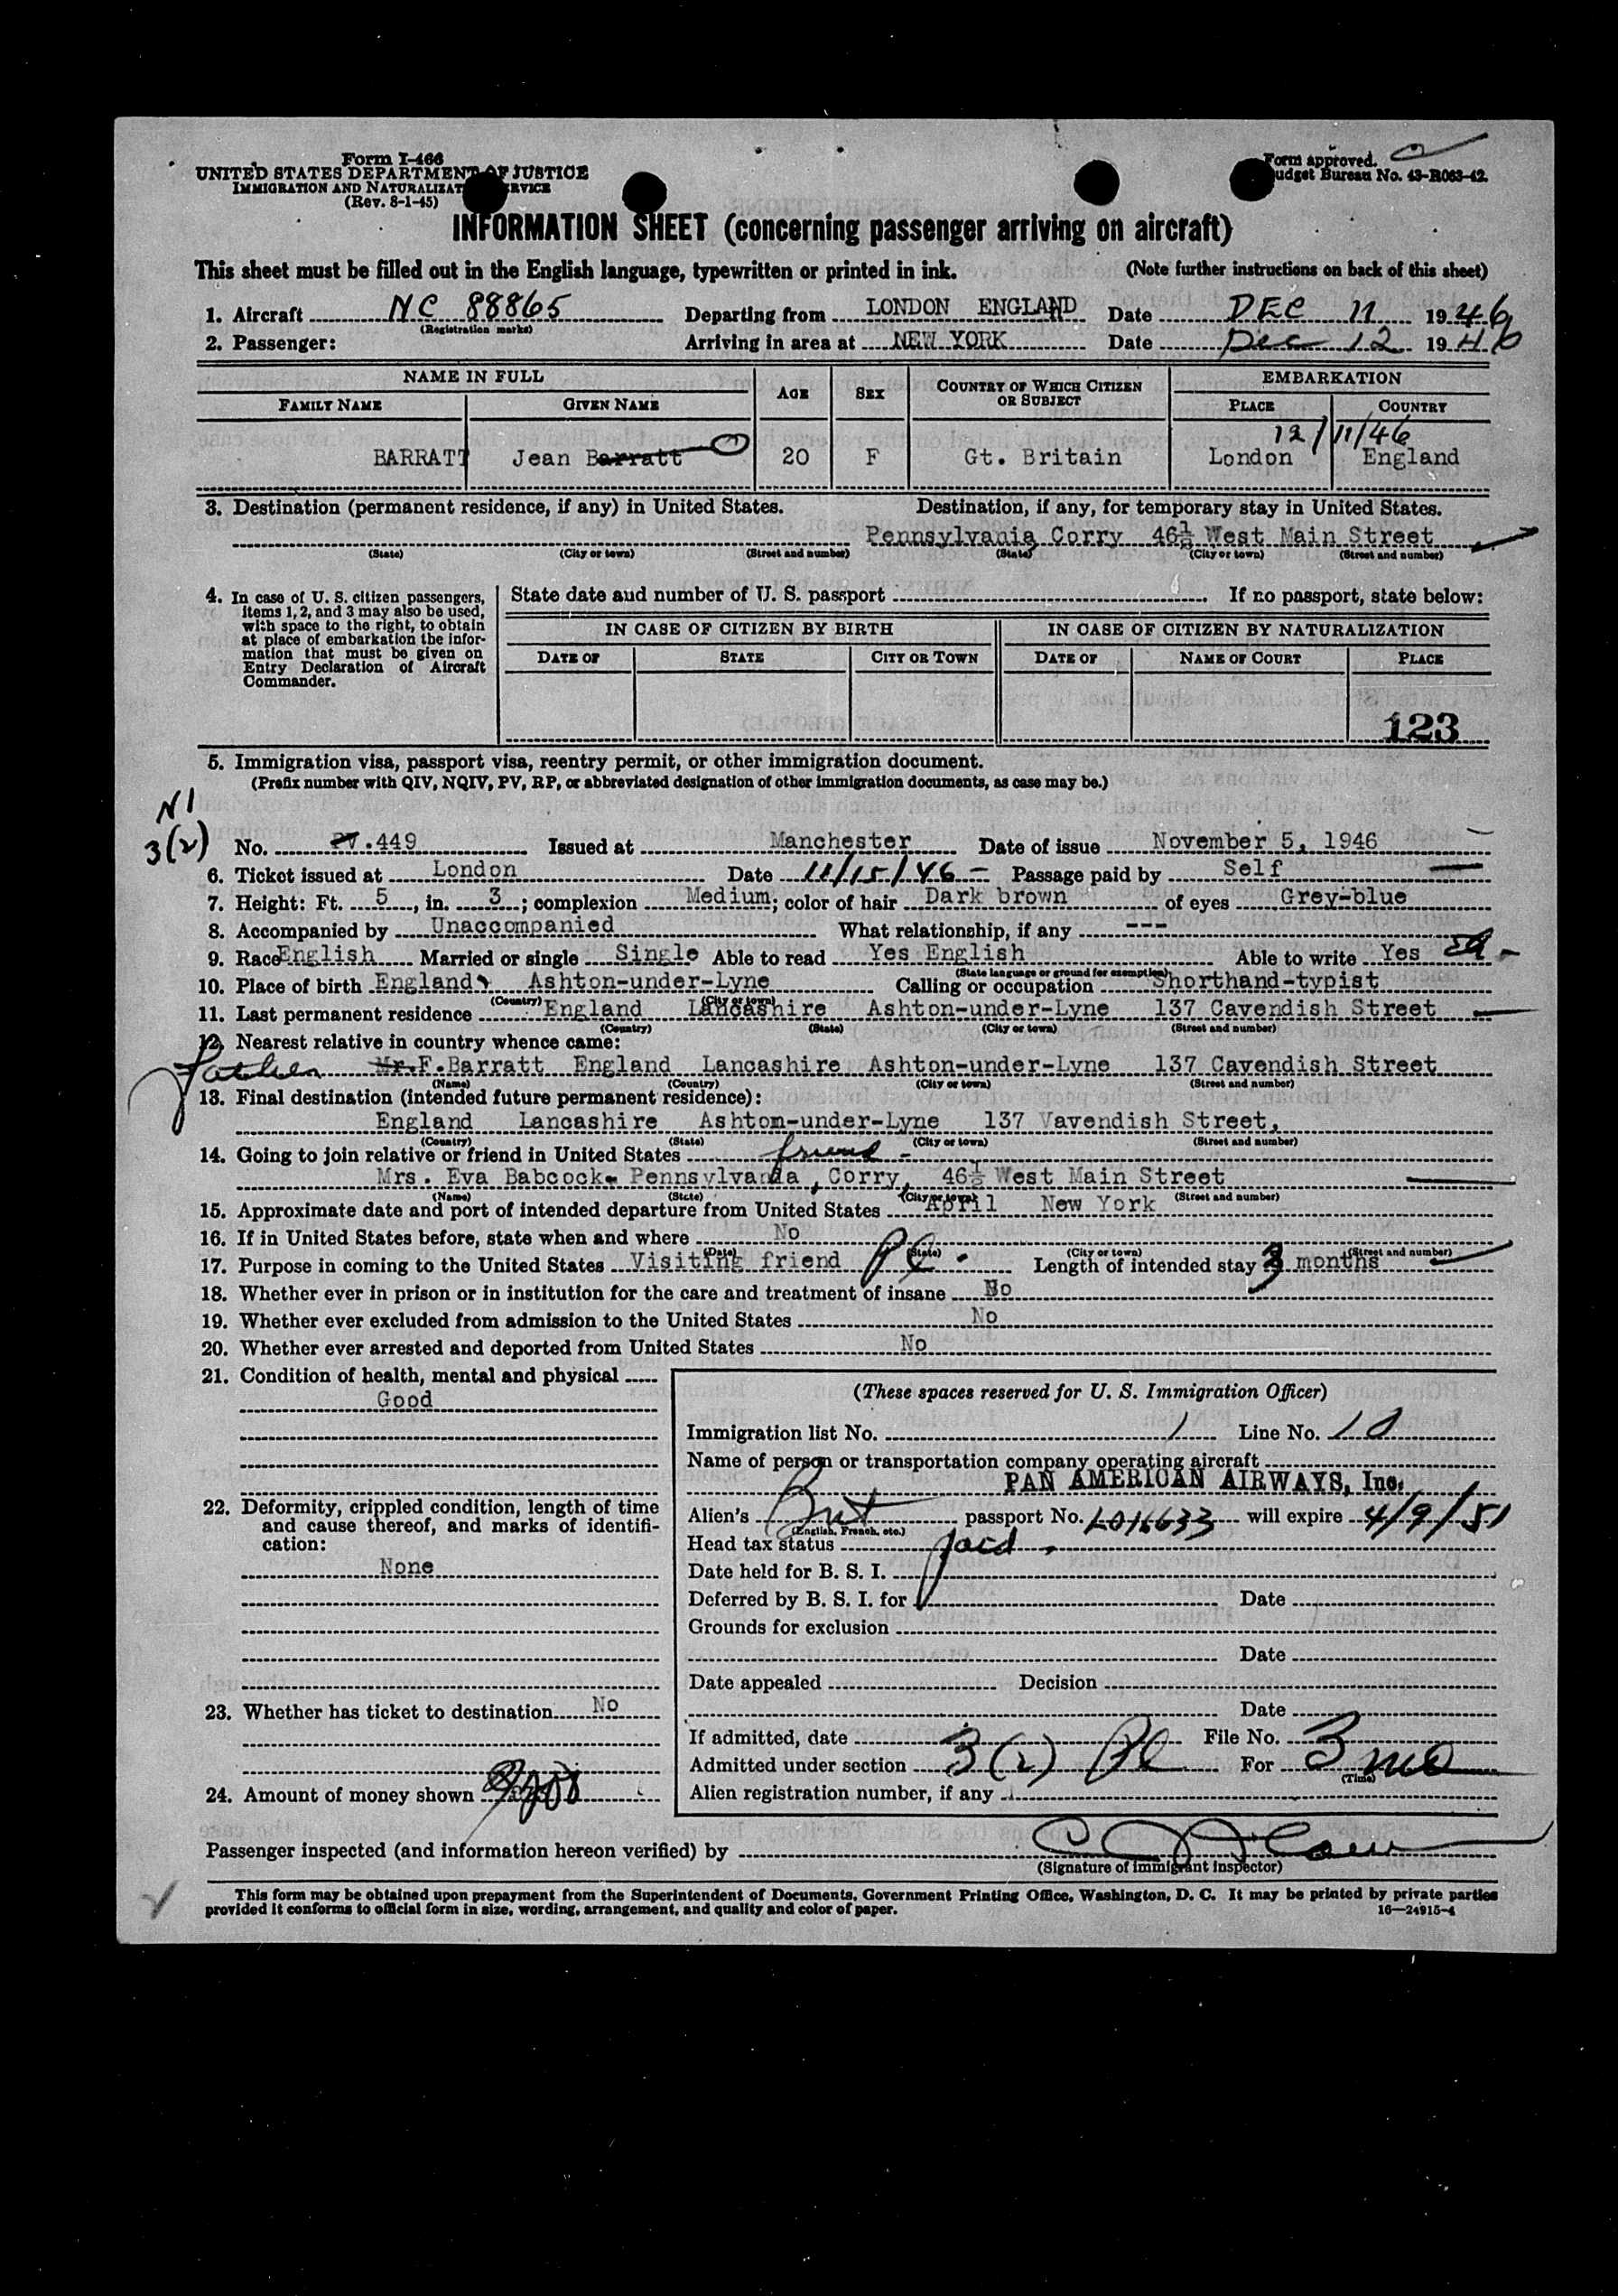 Form I-466
UNITED STATES DEPARTMENT OF JUSTICE
IMMIGRATION AND NATURALIZATION SERVICE
(Rev. 8-1-45)
Form approved.
Budget Bureau No. 43-R063-42.
INFORMATION SHEET (concerning passenger arriving on aircraft)
This sheet must be filled out in the English language, typewritten or printed in ink. (Note further instructions on back of this sheet)
1. Aircraft NC 88865 Departing from LONDON ENGLAND Date DEC 11 1946
(Registration marks)
2. Passenger: Arriving in area at NEW YORK Date Dec 12 1946
NAME IN FULL AGE SEX COUNTRY OF WHICH CITIZEN OR SUBJECT EMBARKATION
FAMILY NAME GIVEN NAME PLACE COUNTRY
12/11/46
BARRATT Jean Barratt 20 F Gt. Britain London England
3. Destination (permanent residence, if any) in United States. Destination, if any, for temporary stay in United States.
Pennsylvania Corry 46½ West Main Street
(State) (City or town) (Street and number) (State) (City or town) (Street and number)
4. In case of U. S. citizen passengers, items 1, 2, and 3 may also be used, with space to the right, to obtain at place of embarkation the information that must be given on Entry Declaration of Aircraft Commander.
State date and number of U. S. passport If no passport, state below:
IN CASE OF CITIZEN BY BIRTH IN CASE OF CITIZEN BY NATURALIZATION
DATE OF STATE CITY OR TOWN DATE OF NAME OF COURT PLACE
123
5. Immigration visa, passport visa, reentry permit, or other immigration document.
(Prefix number with QIV, NQIV, PV, RP, or abbreviated designation of other immigration documents, as case may be.)
NI
3(2) No. PV.449 Issued at Manchester Date of issue November 5, 1946
6. Ticket issued at London Date 11/15/46 Passage paid by Self
7. Height: Ft. 5, in. 3; complexion Medium; color of hair Dark brown of eyes Grey-blue
8. Accompanied by Unaccompanied What relationship, if any ---
9. Race English Married or single Single Able to read Yes English Able to write Yes
(State language or ground for exemption)
10. Place of birth England, Ashton-under-Lyne Calling or occupation Shorthand-typist
(Country) (City or town)
11. Last permanent residence England Lancashire Ashton-under-Lyne 137 Cavendish Street
(Country) (State) (City or town) (Street and number)
12. Nearest relative in country whence came:
Father Mr.F.Barratt England Lancashire Ashton-under-Lyne 137 Cavendish Street
(Name) (Country) (City or town) (Street and number)
13. Final destination (intended future permanent residence):
England Lancashire Ashton-under-Lyne 137 Vavendish Street,
(Country) (State) (City or town) (Street and number)
14. Going to join relative or friend in United States friend
Mrs. Eva Babcock Pennsylvania, Corry, 46½ West Main Street
(Name) (State) (City or town) (Street and number)
15. Approximate date and port of intended departure from United States April New York
16. If in United States before, state when and where No
(Date) (State) (City or town) (Street and number)
17. Purpose in coming to the United States Visiting friend Pl Length of intended stay 3 months
18. Whether ever in prison or in institution for the care and treatment of insane No
19. Whether ever excluded from admission to the United States No
20. Whether ever arrested and deported from United States No
21. Condition of health, mental and physical
Good
22. Deformity, crippled condition, length of time and cause thereof, and marks of identification:
None
23. Whether has ticket to destination No
24. Amount of money shown
(These spaces reserved for U. S. Immigration Officer)
Immigration list No. 1 Line No. 10
Name of person or transportation company operating aircraft
PAN AMERICAN AIRWAYS, Inc.
Alien's Brit passport No. L016633 will expire 4/9/51
(English, French, etc.)
Head tax status paid
Date held for B. S. I.
Deferred by B. S. I. for Date
Grounds for exclusion
Date
Date appealed Decision
Date
If admitted, date File No.
Admitted under section 3(2) Pl For 3 mo
(Time)
Alien registration number, if any
Passenger inspected (and information hereon verified) by
(Signature of immigrant inspector)
This form may be obtained upon prepayment from the Superintendent of Documents, Government Printing Office, Washington, D. C. It may be printed by private parties
provided it conforms to official form in size, wording, arrangement, and quality and color of paper. 16—24915-4